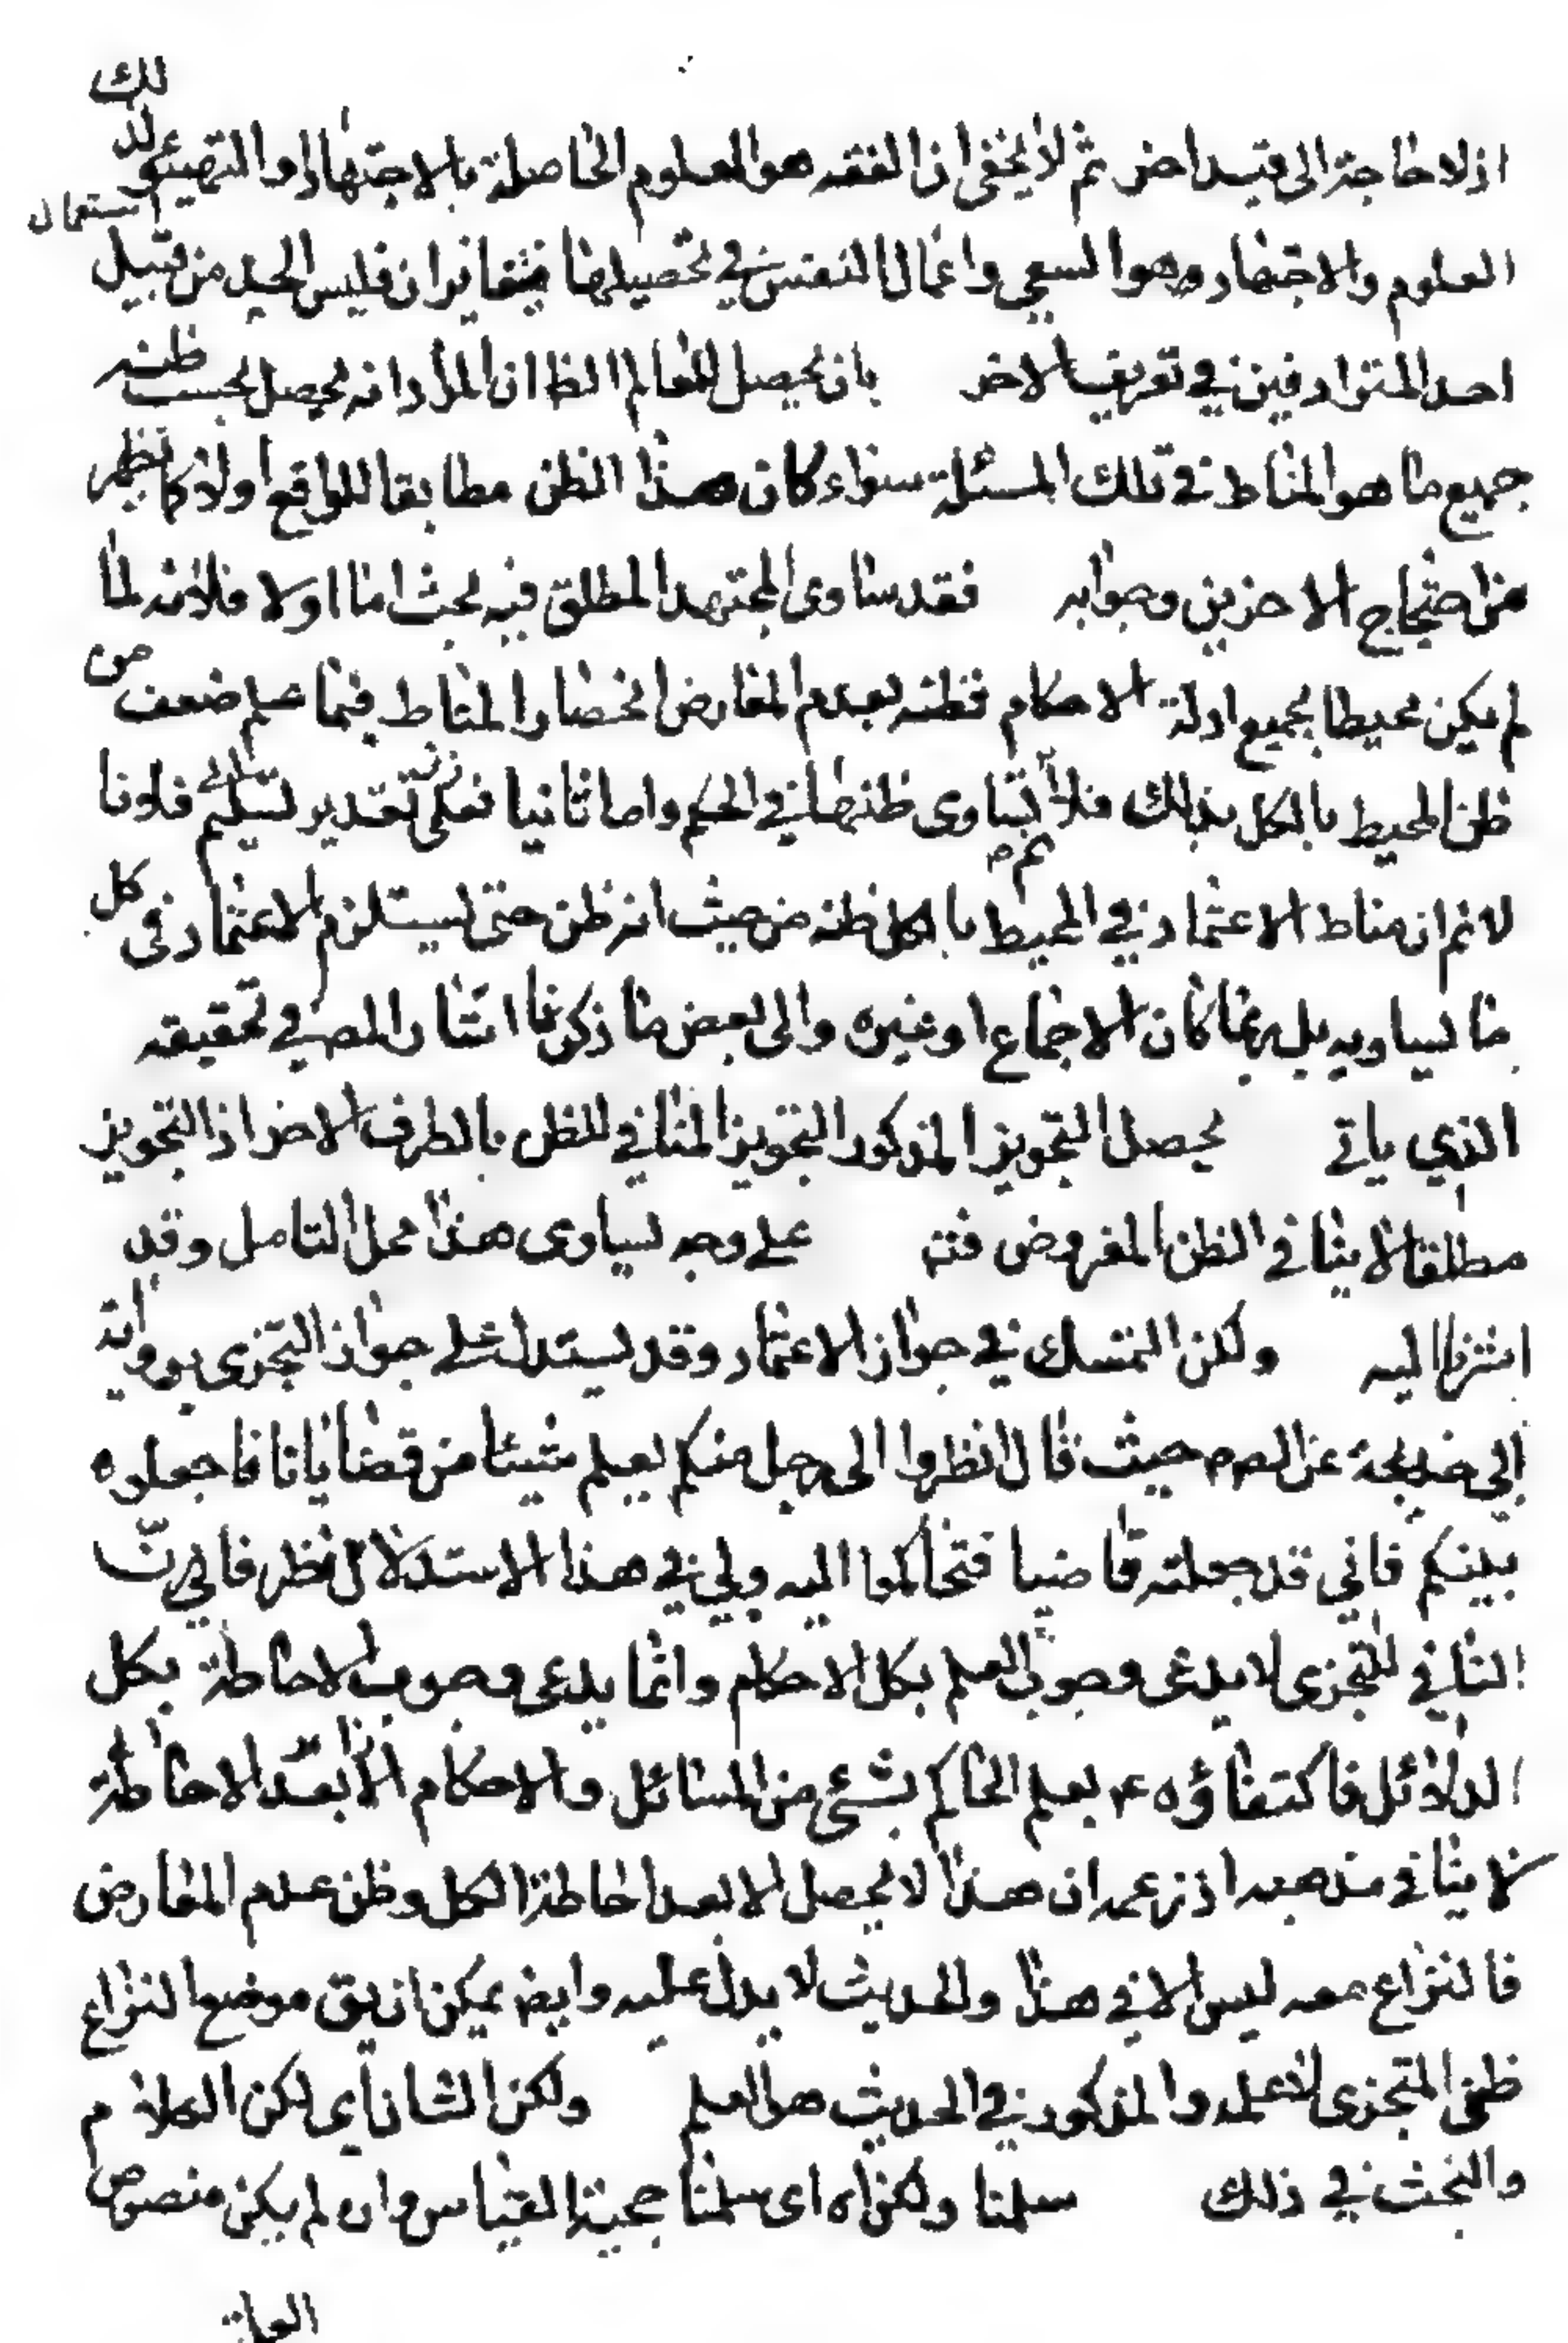 اذ لا حاجة الى قيد اخر ثم لا يخفى ان الفقه هو العلوم الحاصلة بالاجتهاد او التهيئ لتلك
استعمال
العلوم والاجتهاد وهو السعي واعمال النفس في تحصيلها متغايران فليس الحد من قبيل
احد المترادفين في تعريف الاخر بان يحصل للعالم الظ ان المراد انه يحصل بحسب ظنه
جميع ما هو المناط في تلك المسئلة سواء كان هذا الظن مطابقا للواقع او لا كما يظهر
من احتجاج الاخرين وجوابه فقد ساوى المجتهد المطلق فيه بحث اما اولا فلانه لما
لم يكن محيطا بجميع ادلة الاحكام فظنه بعدم المعارض وانحصار المناط فيما علم ضعف من
ظن المحيط بالكل بذلك فلا يتساوى ظنهما في الحكم واما ثانيا فعلى تقدير تسليم فلانا
لانم ان مناط الاعتماد في المحيط بالكل ظنه من حيث انه ظن حتى يستلزم الاعتماد في كل
ما يساويه بل ربما كان الاجماع او غيره والى بعض ما ذكرنا اشار المص في تحقيقه
الذي ياتي يحصل التجويز المذكور التجويز المنافي للظن بالطرف الاخر اذ التجويز
مطلقا لا ينافي الظن المفروض فتم على وجه يساوى هذا محل التامل وقد
اشرنا اليه ولكن التمسك في جواز الاعتماد وقد يستدل على جواز التجزى برواية
ابي خديجة عن الصم حيث قال انظروا الى رجل منكم يعلم شيئا من قضايانا فاجعلوه
بينكم فاني قد جعلته قاضيا فتحاكموا اليه ولي في هذا الاستدلال نظر فاني ان
النافي للتجزى لا يدعى وجوب العلم بكل الاحكام وانما يدعى وجوب الاحاطة بكل
الدلائل فاكتفاؤه ع بعلم الحاكم بشئ من المسائل والاحكام الا بعد الاحاطة
لا ينافي مذهبه اذ زعمه ان هذا لا يحصل الا بعد احاطة الكل وظن عدم المعارض
فالنزاع معه ليس الا في هذا والحديث لا يدل عليه وايض يمكن ان يق موضع النزاع
ظن المتجزى لا علمه والمذكور في الحديث هو العلم ولكن الشان اي لكن الكلام
والبحث في ذلك سلمنا ولكن اه اى سلمنا حجية القياس وان لم يكن منصوص
العلة